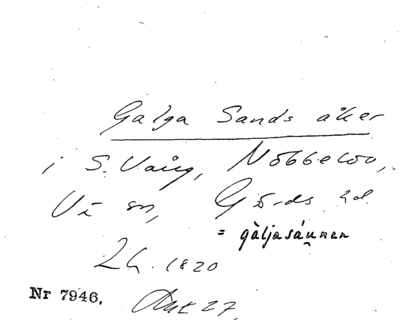 Galga Sands åker
i S. Vång, Nöbbelöv,
Vä sn, Gärds hd.
= gàljasáunen
Lh. 1820
Nr 7946. Akt 27.